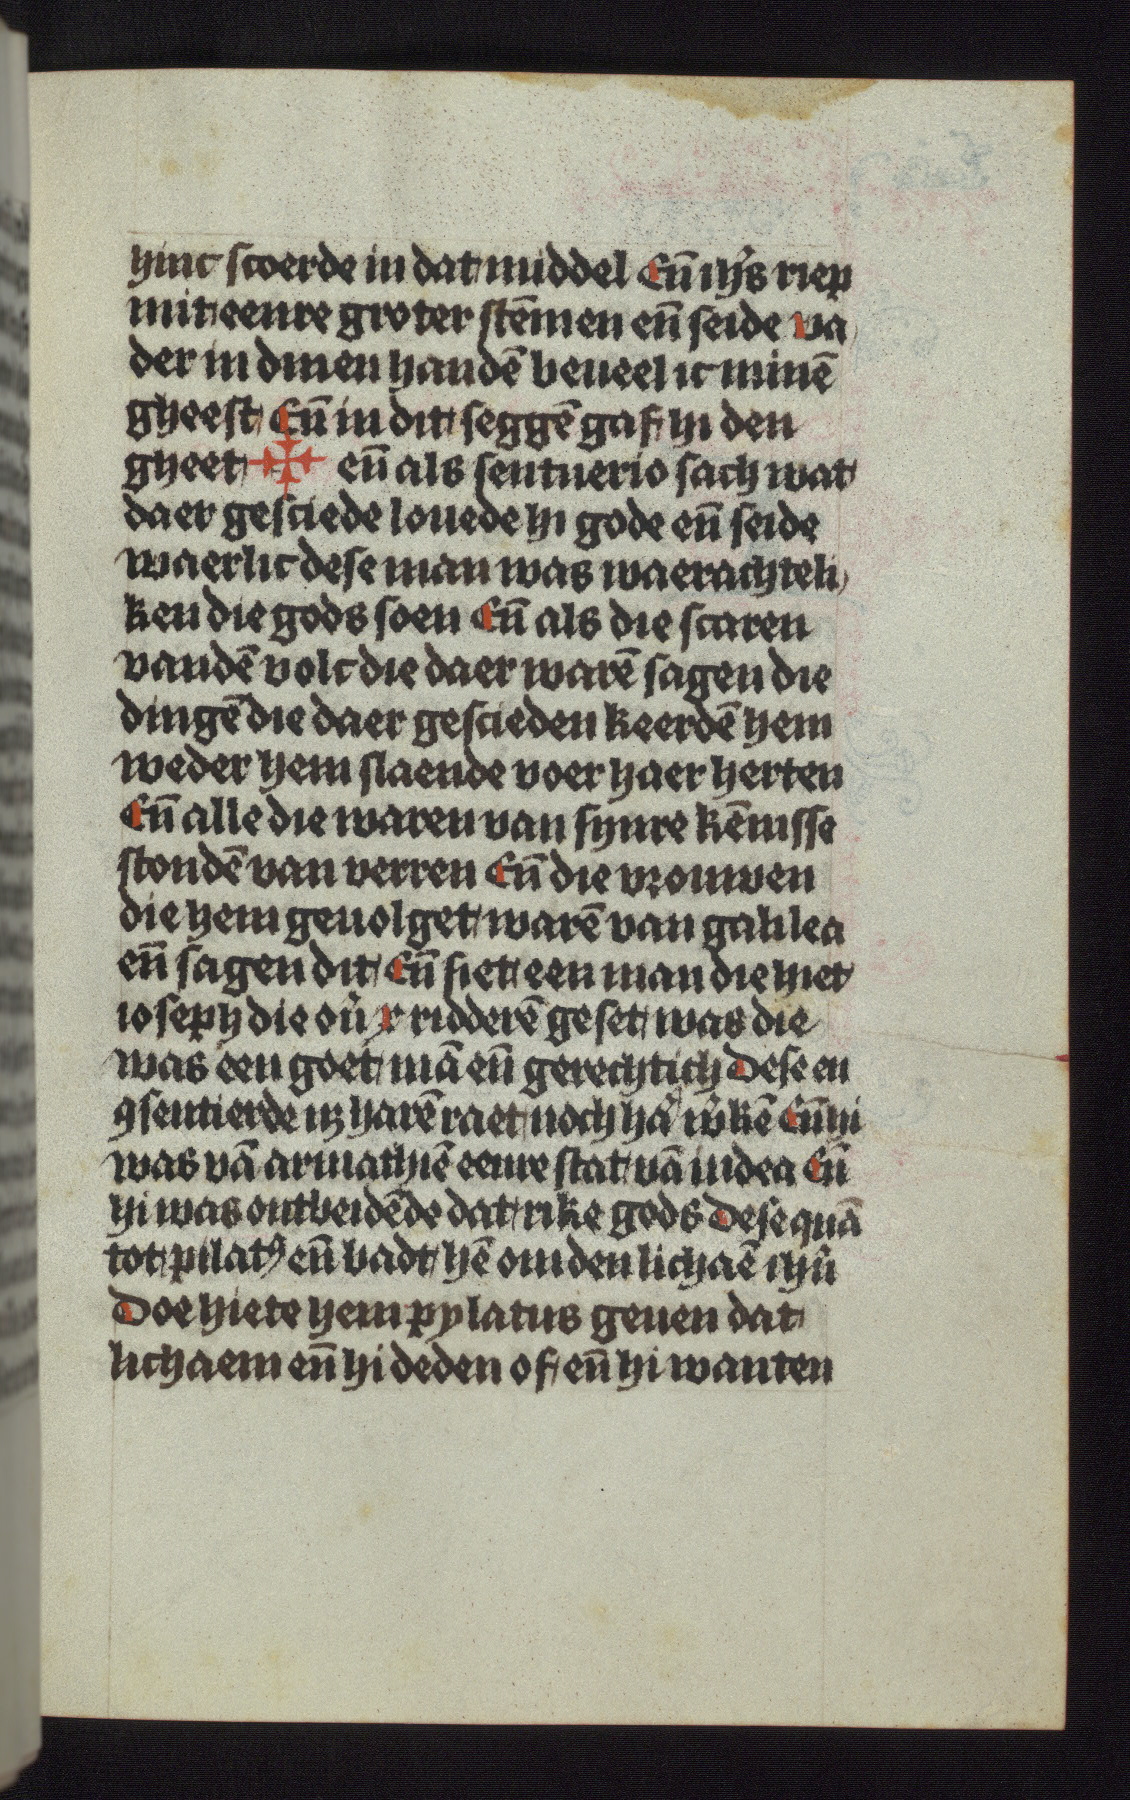 hinc scoerde in dat middel Eñ ihs riep
mit eenre groter stēmen eñ seide va
der in dinen handē beueel ic minē
gheest Eñ in dit seggē gaf hi den
gheet ✠ eñ als sentuerio sach wat
daer gesciede louede hi gode eñ seide
waerlic dese man was waerachteli
ken die gods soen Eñ als die scaren
vandē volc die daer warē sagen die
dingē die daer gescieden keerdē hem
weder hem slaende voer haer herten
Eñ alle die waren van synre kēnisse
stondē van verren Eñ die vrouwen
die hem geuolget warē van galilea
eñ sagen dit Eñ siet een man die hiet
ioseph die ouͬ x ridderē geset was die
was een goet mā eñ gerechtich Dese en
ꝯsentierde nz harē raet noch haͬ wͬkē Eñ hi
was vā armathiē eenre stat vā iudea Eñ
hi was ontbeidēde dat rike gods Dese quā
tot pilatꝰ eñ badt hē om den lichaē ihū
Doe hiete hem pylatus geuen dat
lichaem eñ hi deden of eñ hi wanten